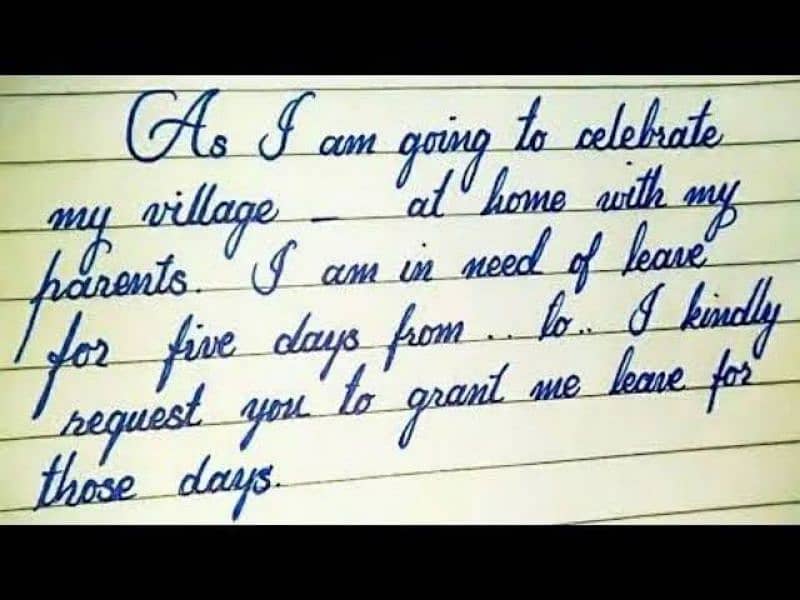 As I am going to celebrate
my village _ at home with my
parents. I am in need of leave
for five days from .. to.. I kindly
request you to grant me leave for
those days.